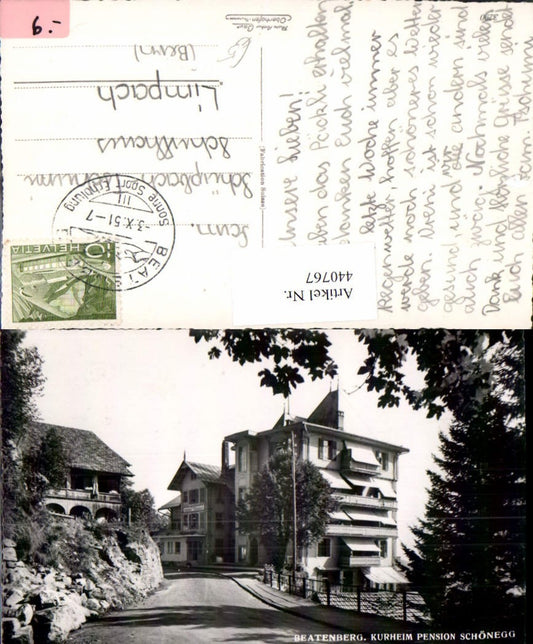 -9.-
Unsere Lieben!
Haben das Päckli erhalten
danken Euch vielmal
letzte Woche immer
Regenwetter, hoffen aber es
werde noch schöneres Wetter
geben. Anni ist schon wieder
gesund und alle andern sind
auch zwäg. Nochmals vielen
Dank und herzliche Grüsse sendet
Euch allen Fam. Tschumi
Fam.
Schüpbach-Tschumi
Schulhaus
Limpach
(Bern)
BEATENBERG
-3.X.51-7
III
Sonne Sport Erholung
HELVETIA
10
Artikel Nr.
440767
BEATENBERG. KURHEIM PENSION SCHÖNEGG